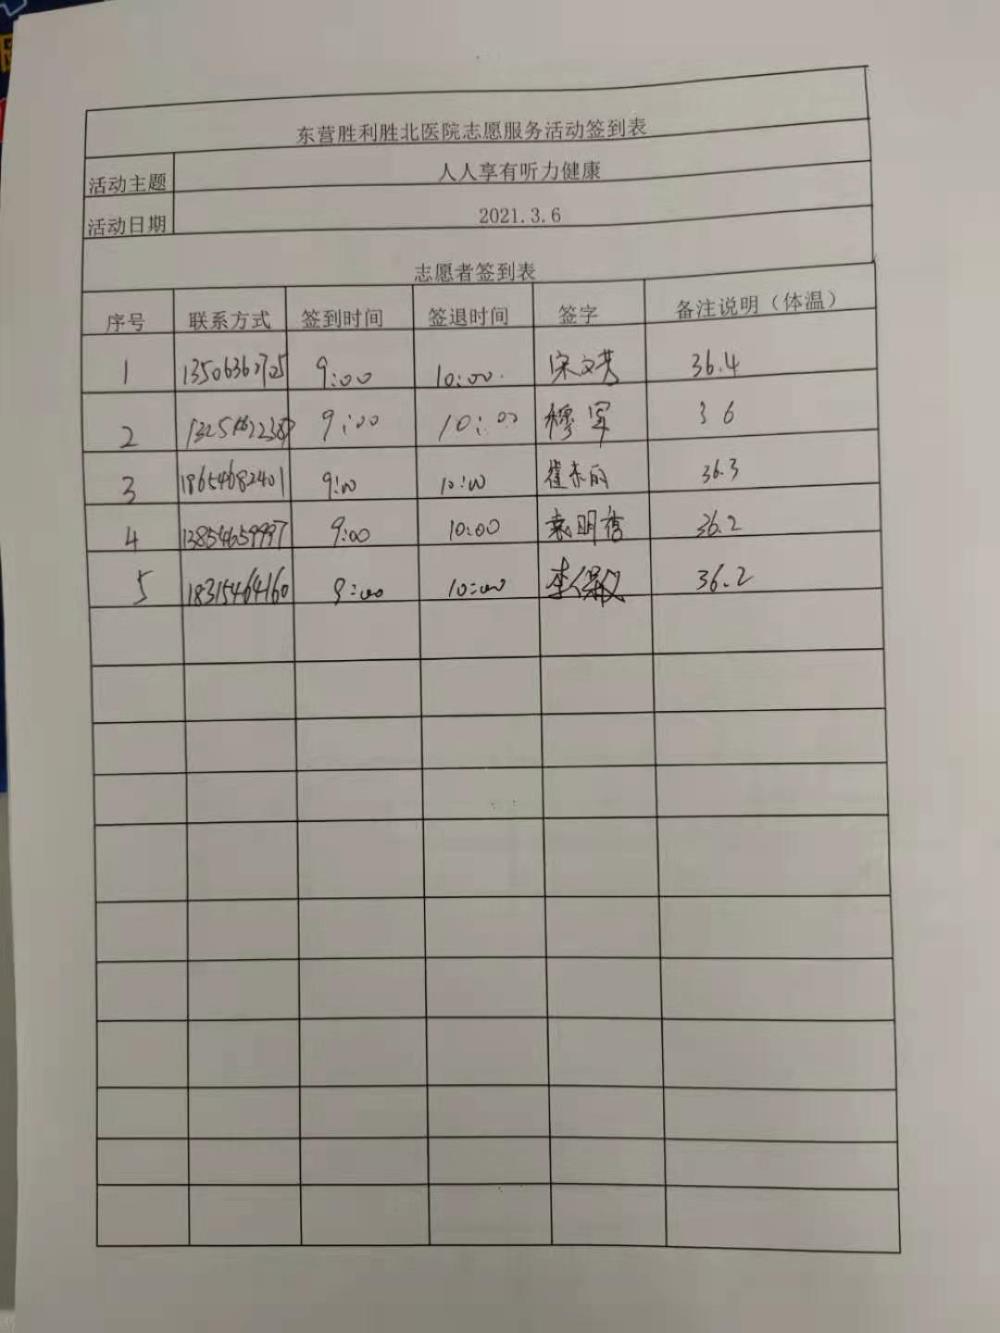 东营胜利胜北医院志愿服务活动签到表
活动主题 人人享有听力健康
活动日期 2021.3.6
志愿者签到表
序号 联系方式 签到时间 签退时间 签字 备注说明（体温）
1 13506362725 9:00 10:00 宋文芳 36.4
2 9:00 10:00 穆军 36
3 18654682401 9:00 10:00 崔 36.3
4 13854659997 9:00 10:00 袁明 36.2
5 18315464160 9:00 10:00 李保 36.2